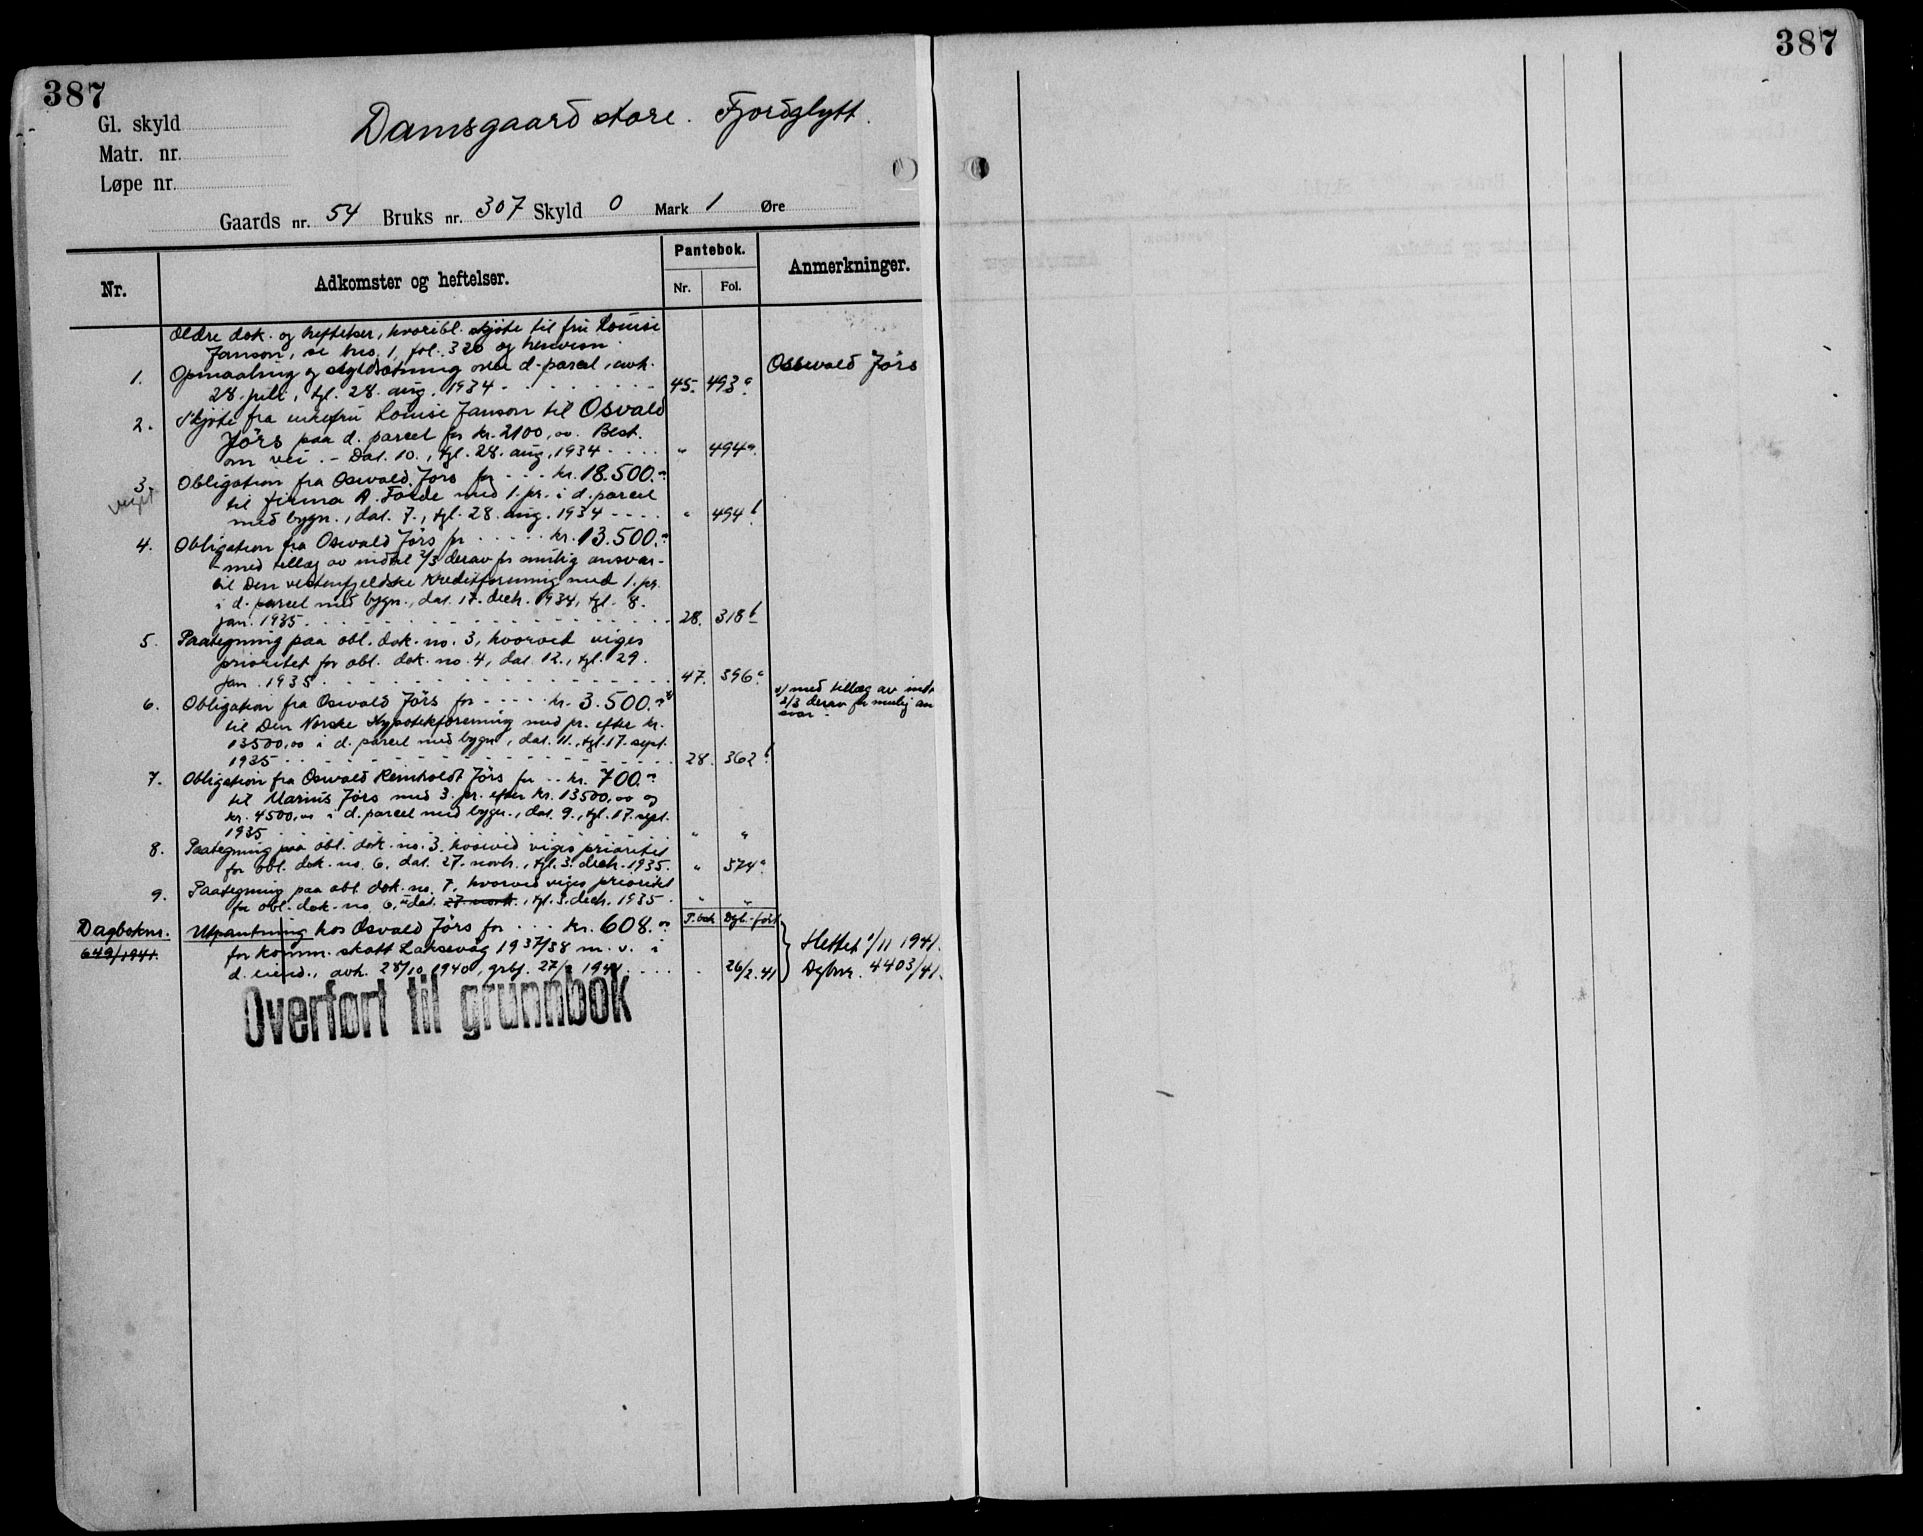 387
387
Gl. skyld
Matr. nr.
Løpe nr.
Damsgaard store. Fjordglytt.
Gaards nr. 54 Bruks nr. 307 Skyld 0 Mark 1 Øre
Nr.
Adkomster og heftelser.
Pantebok.
Nr. Fol.
Anmerkninger.
Ældre dok. og heftelser, hvoribl. skjöte til fru Louise
Janson, se bns. 1, fol. 320 og henvisn.
Osswald Jörs
1. Opmaaling og skyldsætning over d. parcel, avh.
28. juli, tgl. 28. aug. 1934 - - - - 45. 493a
2. Skjöte fra enkefru Louise Janson til Osvald
Jörs paa d. parcel for kr. 2100,00. Best.
om vei. - Dat. 10., tgl. 28. aug. 1934 - - - - " 494a.
3. Obligation fra Oswald Jörs for - - - kr. 18.500.00
veget
til firma A. Forde med 1. pr. i d. parcel
med bygn., dat. 7., tgl. 28. aug. 1934 - - - - " 494b
4. Obligation fra Oswald Jörs for - - - - - kr. 13.500.00
- med tillæg av indtil 2/3 derav for mulig ansvar -
til Den vestenfjeldske Kreditforening med 1. pr.
i d. parcel med bygn., dat. 17. decb. 1934, tgl. 8.
jan. 1935 - - - - 28. 318b
5. Paategning paa obl. dok. no. 3, hvorved viges
prioritet for obl. dok. no. 4, dat. 12., tgl. 29.
jan. 1935 - - - - 47. 396a
6. Obligation fra Oswald Jörs for - - - - - kr. 3.500.00 x)
x) med tillæg av indt.
2/3 derav for mulig an
svar -
til Den Norske Hypotekforening med pr. efter kr.
13500,00 i d. parcel med bygn., dat. 11., tgl. 17. sept.
1935 - - - - 28. 362b
7. Obligation fra Oswald Reinholdt Jörs for - - kr. 700.00
til Marius Jörs med 3. pr. efter kr. 13500,00 og
kr. 4500,00 i d. parcel med bygn., dat. 9., tgl. 17. sept.
1935 - - - - " "
8. Paategning paa obl. dok. no. 3, hvorved viges prioritet
for obl. dok. no. 6, dat. 27. novb., tgl. 3. decb. 1935. " 574a
9. Paategning paa obl. dok. no. 7, hvorved viges prioritet
for obl. dok. no. 6, dat. 27. novb., tgl. 3. decb. 1935. " "
P.bok Dgl.-ført
Dagboknr. Utpantning hos Osvald Jörs for - - - kr. 608.00
649/1941.
for komm. skatt Laksevåg 1937/38 m. v. i
d. eiend., avh. 28/10 1940, grbf. 27/2 1941. - - - - 26/2. 41
Slettet /11 1941.
Dgbnr. 4403/41.
Overført til grunnbok